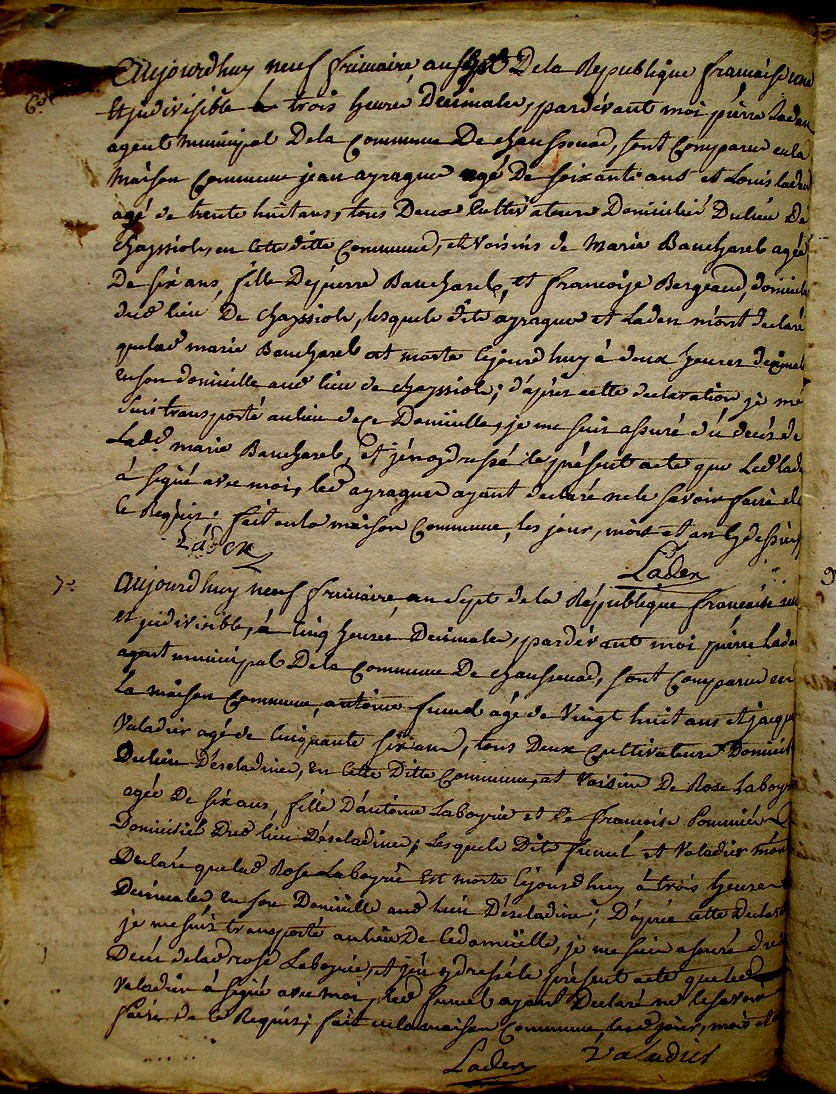 Aujourdhuy neuf frimaire an sept De la République françaïse une
6e
Et jndivisible à trois heures Décimales, pardévant moi pierre Laden
agent municipal De la Commune De chaussenac, sont Comparu en la
Maison Commune jean ayrague agé De soixante ans et Louis laden
agé de trente huit ans, tous Deux Cultivateurs Domiciliés Du lieu De
chayssiole, en cette ditte Commune, et voisins de Marie Baucharel agée
De six ans, fille De pierre Baucharel, et francoise Bergeaud, domicilié
dud lieu De chayssiole, lesquels dits ayrague et Laden m'ont declaré
que lad marie Baucharel est morte cejourdhuy à deux heures decimale
en son domicille aud lieu de chayssiole; d'après cette declaration je me
suis transporté au lieu de ce Domicille, je me suis assuré du decès de
Lad. marie Baucharel, et j'en ay dressé le présent acte que Led lade
à signé avec moi, led ayrague ayant declaré ne le savoir faire de
ce Requis. fait en la maison Commune, les jour, mois et an cy dessus
Laden
Laden
7e
Aujourdhuy neuf frimaire, an sept de la République française une
et jndivisible, à cinq heures Decimales, pardévant moi pierre Lade
agent municipal De la Commune De chaussenac, sont Comparu en
La maison Commune, antoine funel agé de vingt huit ans et jacque
Valadier agé de Cinquante six ans, tous Deux cultivateurs Domicil
Du lieu D'éscladines, en cette Ditte Commune, et voisins De Rose Laboyri
agée De six ans, fille D'antoine Laboyrie et De françoise Pommier
Domiciliés Dud lieu D'éscladines; Lesquels Dits funel et Valadier m'on
Déclaré que lad Rose Laboyrie Est morte cejourdhuy à trois heures
Décimales en son Domicille aud lieu D'éscladines; D'après cette Declara
je me suis transporté au lieu De ce domicille, je me suis assuré du
Decès de lad rose Laboyrie, et j'en ay dressé le présent acte que led
Valadier à signé avec moi, led funel ayant Declaré ne le savoir
faire de ce Requis; fait en la maison Commune, les jour, mois et
Laden
Valadier